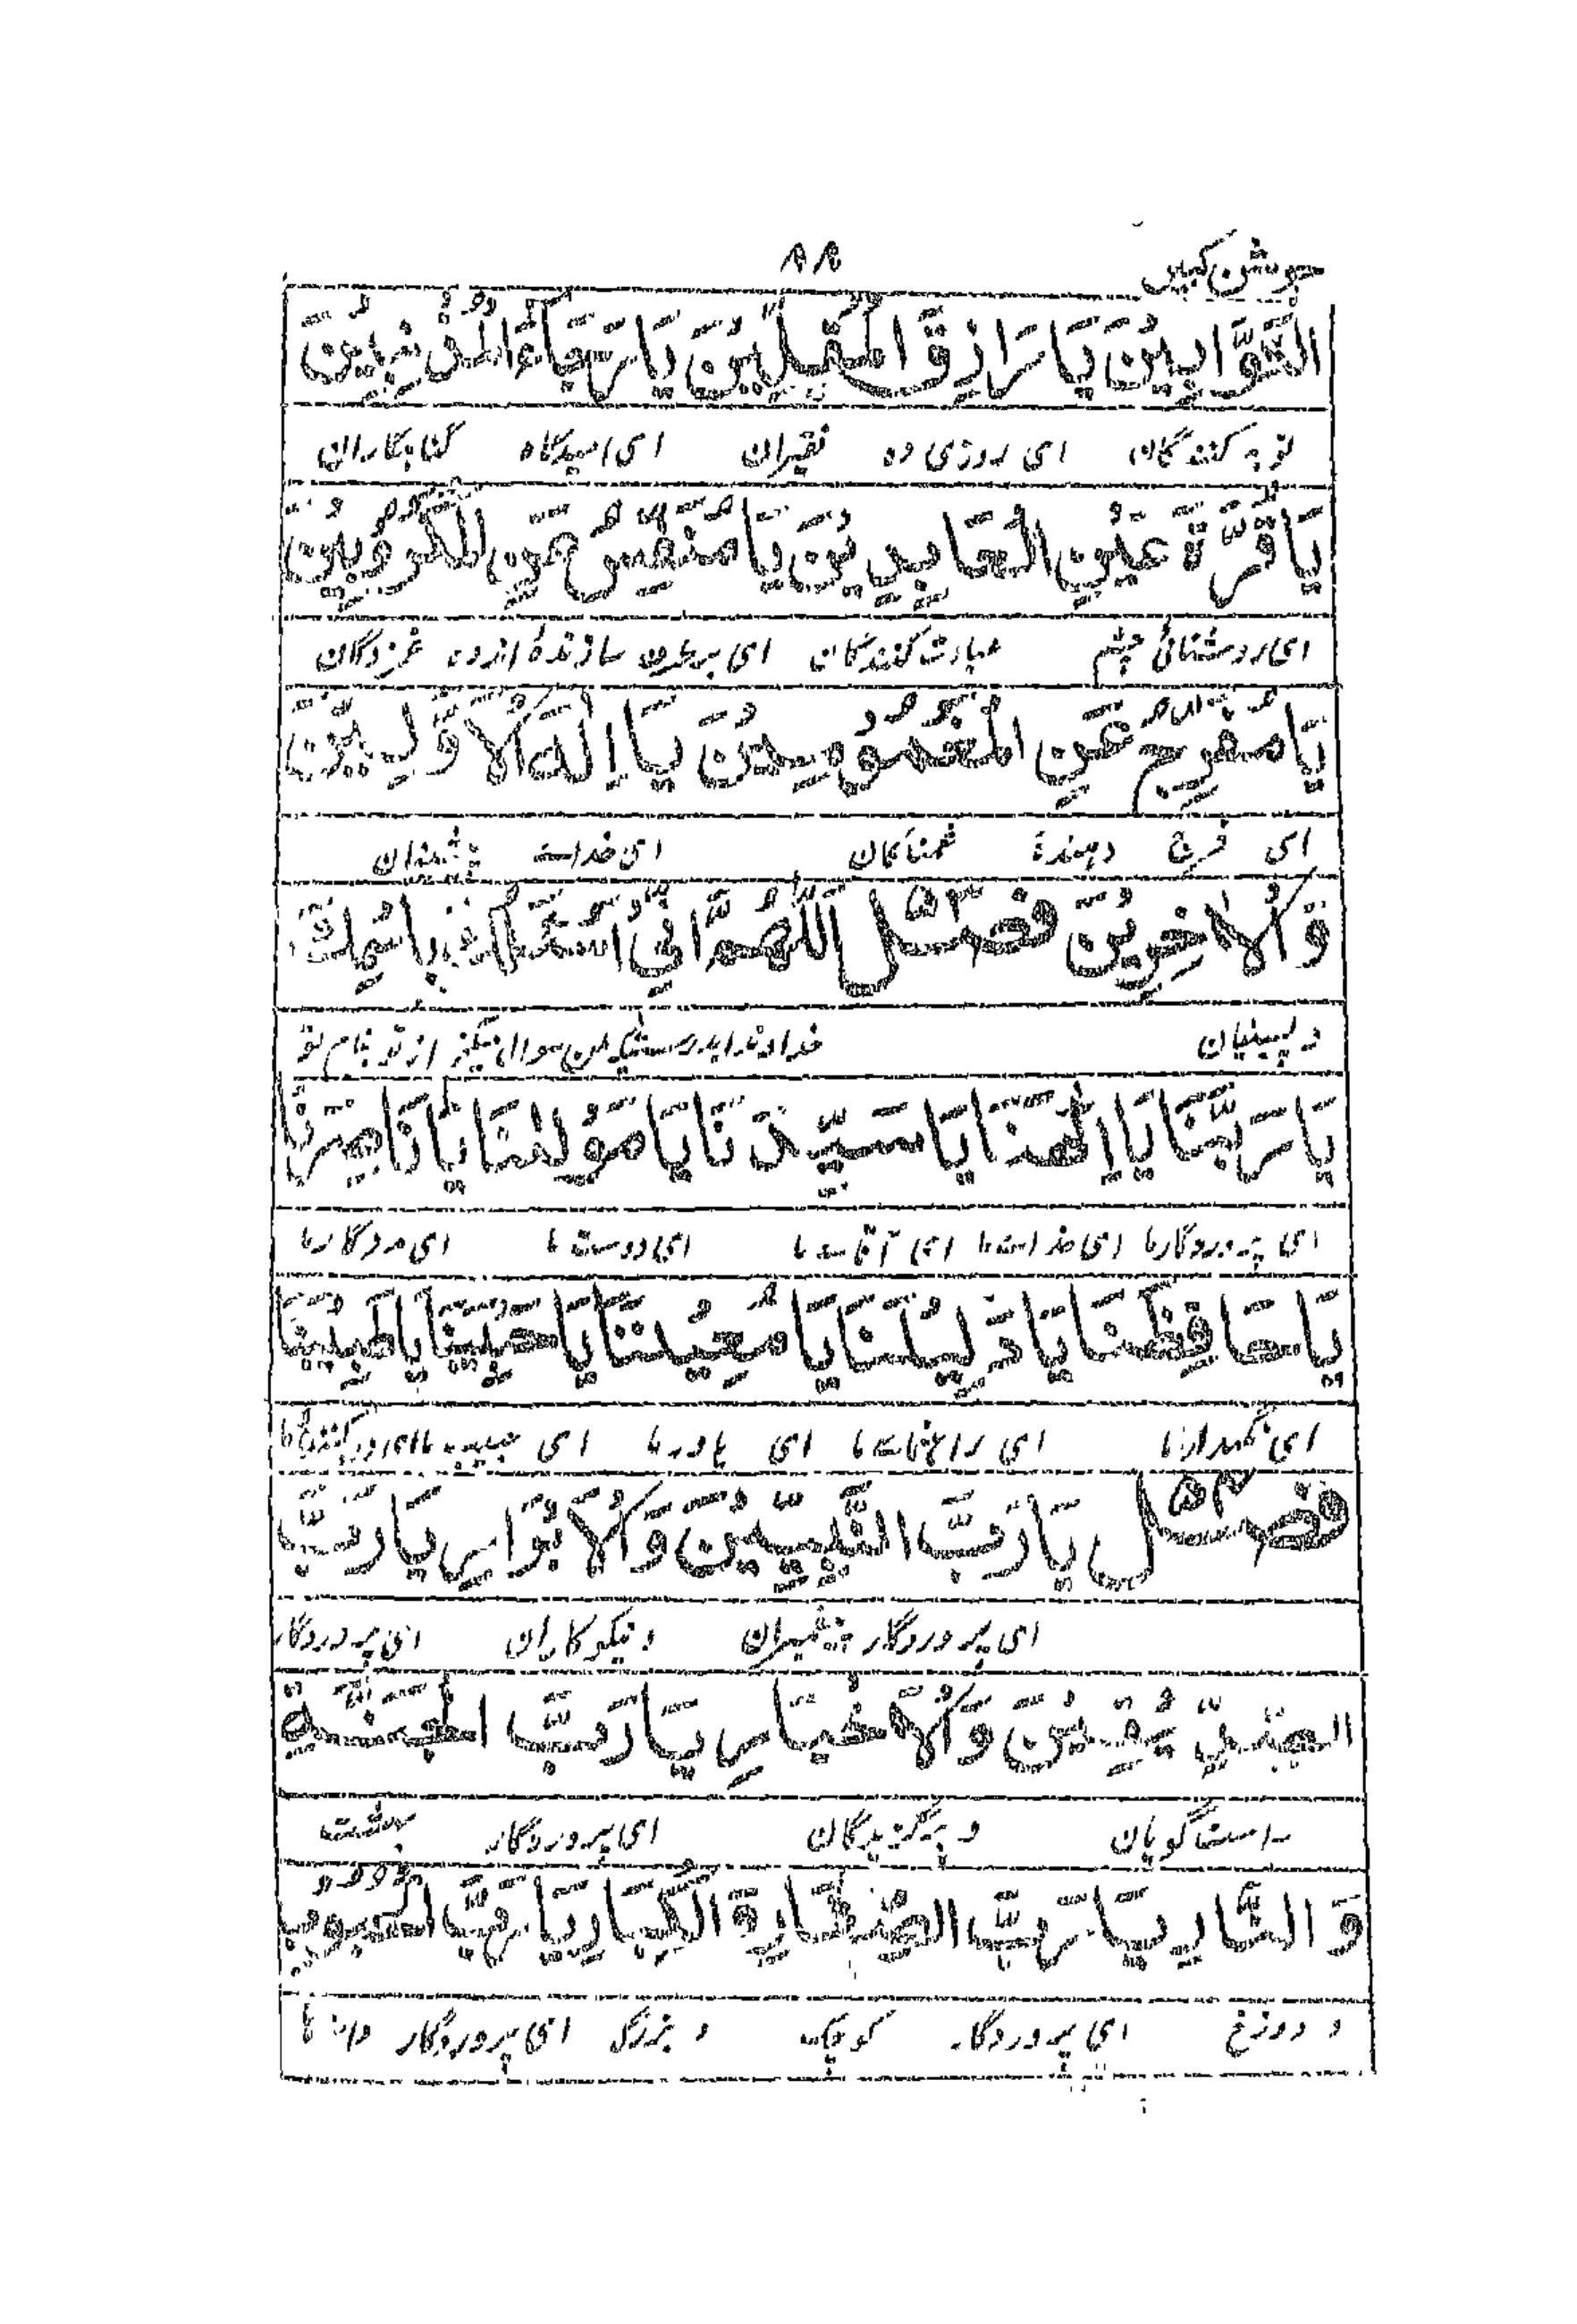 جوشن کبیر
۸۸
التَّوَّابِيْنَ يَا رَازِقَ الْمُقِلِّيْنَ يَا رَجَاءَ الْمُذْنِبِيْنَ
توبہ کنندگان ای روزی دہ فقیران ای امیدگاہ گناہگاران
يَا قُرَّةَ عَيْنِ الْعَابِدِيْنَ يَا مُنَفِّسَ عَنِ الْمَكْرُوْبِيْنَ
ای روشنائی چشم عبادت کنندگان ای برطرف سازندۂ اندوہ غمزدگان
يَا مُفَرِّجَ عَنِ الْمَغْمُوْمِيْنَ يَا اِلٰهَ الْاَوَّلِيْنَ
ای فرج دہندۂ غمناکان ای خداے پیشینان
وَ الْاٰخِرِيْنَ فصل ۵۳ اَللّٰهُمَّ اِنِّيْ اَسْئَلُكَ بِاسْمِكَ
و پسینیان خداوندا بدرستیکہ من سوال میکنم از تو بنام تو
يَا رَبَّنَا يَا اِلٰهَنَا يَا سَيِّدَنَا يَا مَوْلٰنَا يَا نَاصِرَنَا
ای پروردگار ما ای خداے ما ای آقاے ما ای دوست ما ای مددگار ما
يَا حَافِظَنَا يَا دَلِيْلَنَا يَا مُعِيْنَنَا يَا حَبِيْبَنَا يَا طَبِيْبَنَا
ای نگہدار ما ای راہنماے ما ای یاور ما ای حبیب ما ای
فصل ۵۴ يَا رَبَّ النَّبِيِّيْنَ وَ الْاَبْرَارِ يَا رَبَّ
ای پروردگار پیغمبران و نیکوکاران ای پروردگار
الصِّدِّيْقِيْنَ وَ الْاَخْيَارِ يَا رَبَّ الْجَنَّةِ
راست گویان و برگزیدگان ای پروردگار بہشت
وَ النَّارِ يَا رَبَّ الصِّغَارِ وَ الْكِبَارِ يَا رَبَّ الْحُبُوْبِ
و دوزخ ای پروردگار کوچک و بزرگ ای پروردگار دانہ ہا